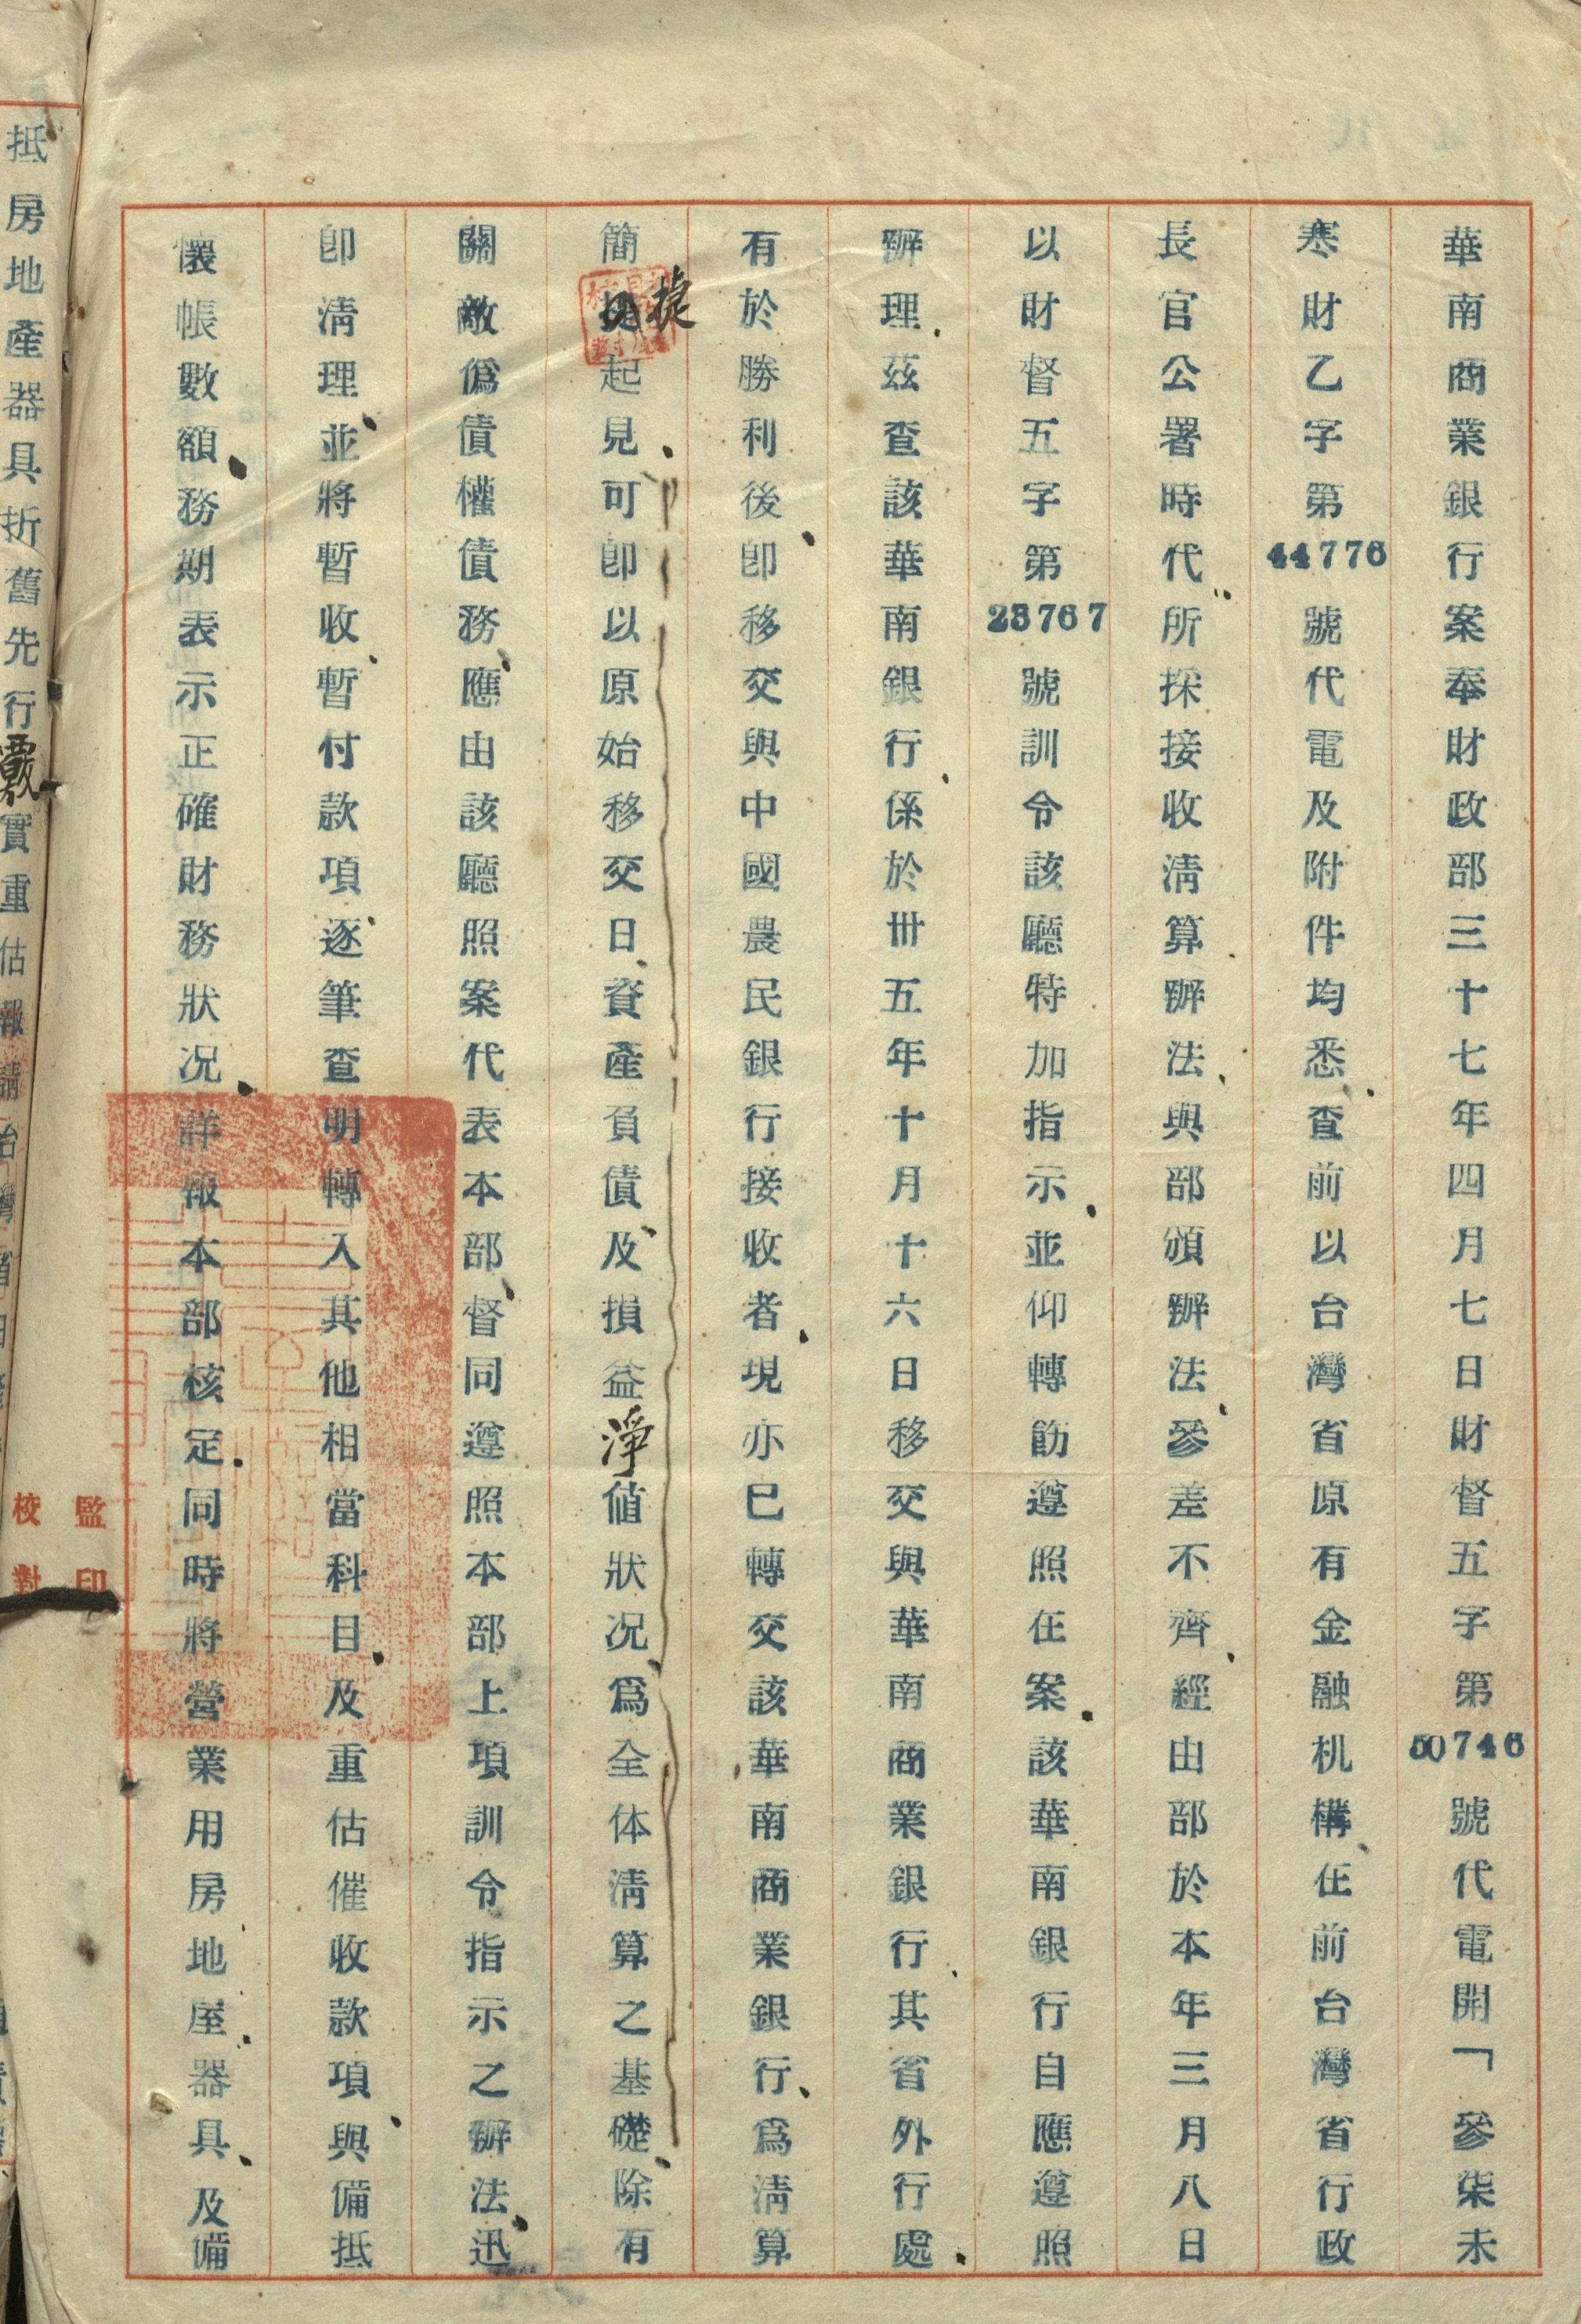 華南商業銀行案奉財政部三十七年四月七日財督五字第50746號代電開「參柒未
寒財乙字第44776號代電及附件均悉查前以台灣省原有金融机構在前台灣省行政
長官公署時代所採接收清算辦法與部頒辦法參差不齊經由部於本年三月八日
以財督五字第23767號訓令該廳特加指示並仰轉飭遵照在案該華南銀行自應遵照
辦理茲查該華南銀行係於卅五年十月十六日移交與華南商業銀行其省外行處
有於勝利後卽移交與中國農民銀行接收者現亦已轉交該華南商業銀行爲清算
簡捷起見可卽以原始移交日資產負債及損益淨値狀況爲全体清算之基礎除有
關敵僞債權債務應由該廳照案代表本部督同遵照本部上項訓令指示之辦法迅
卽清理並將暫收暫付款項逐筆查明轉入其他相當科目及重估催收款項與備抵
懷帳數額務期表示正確財務狀況詳報本部核定同時將營業用房地屋器具及備
抵房地產器具折舊先行覈實重估報請台灣省
監印
校對